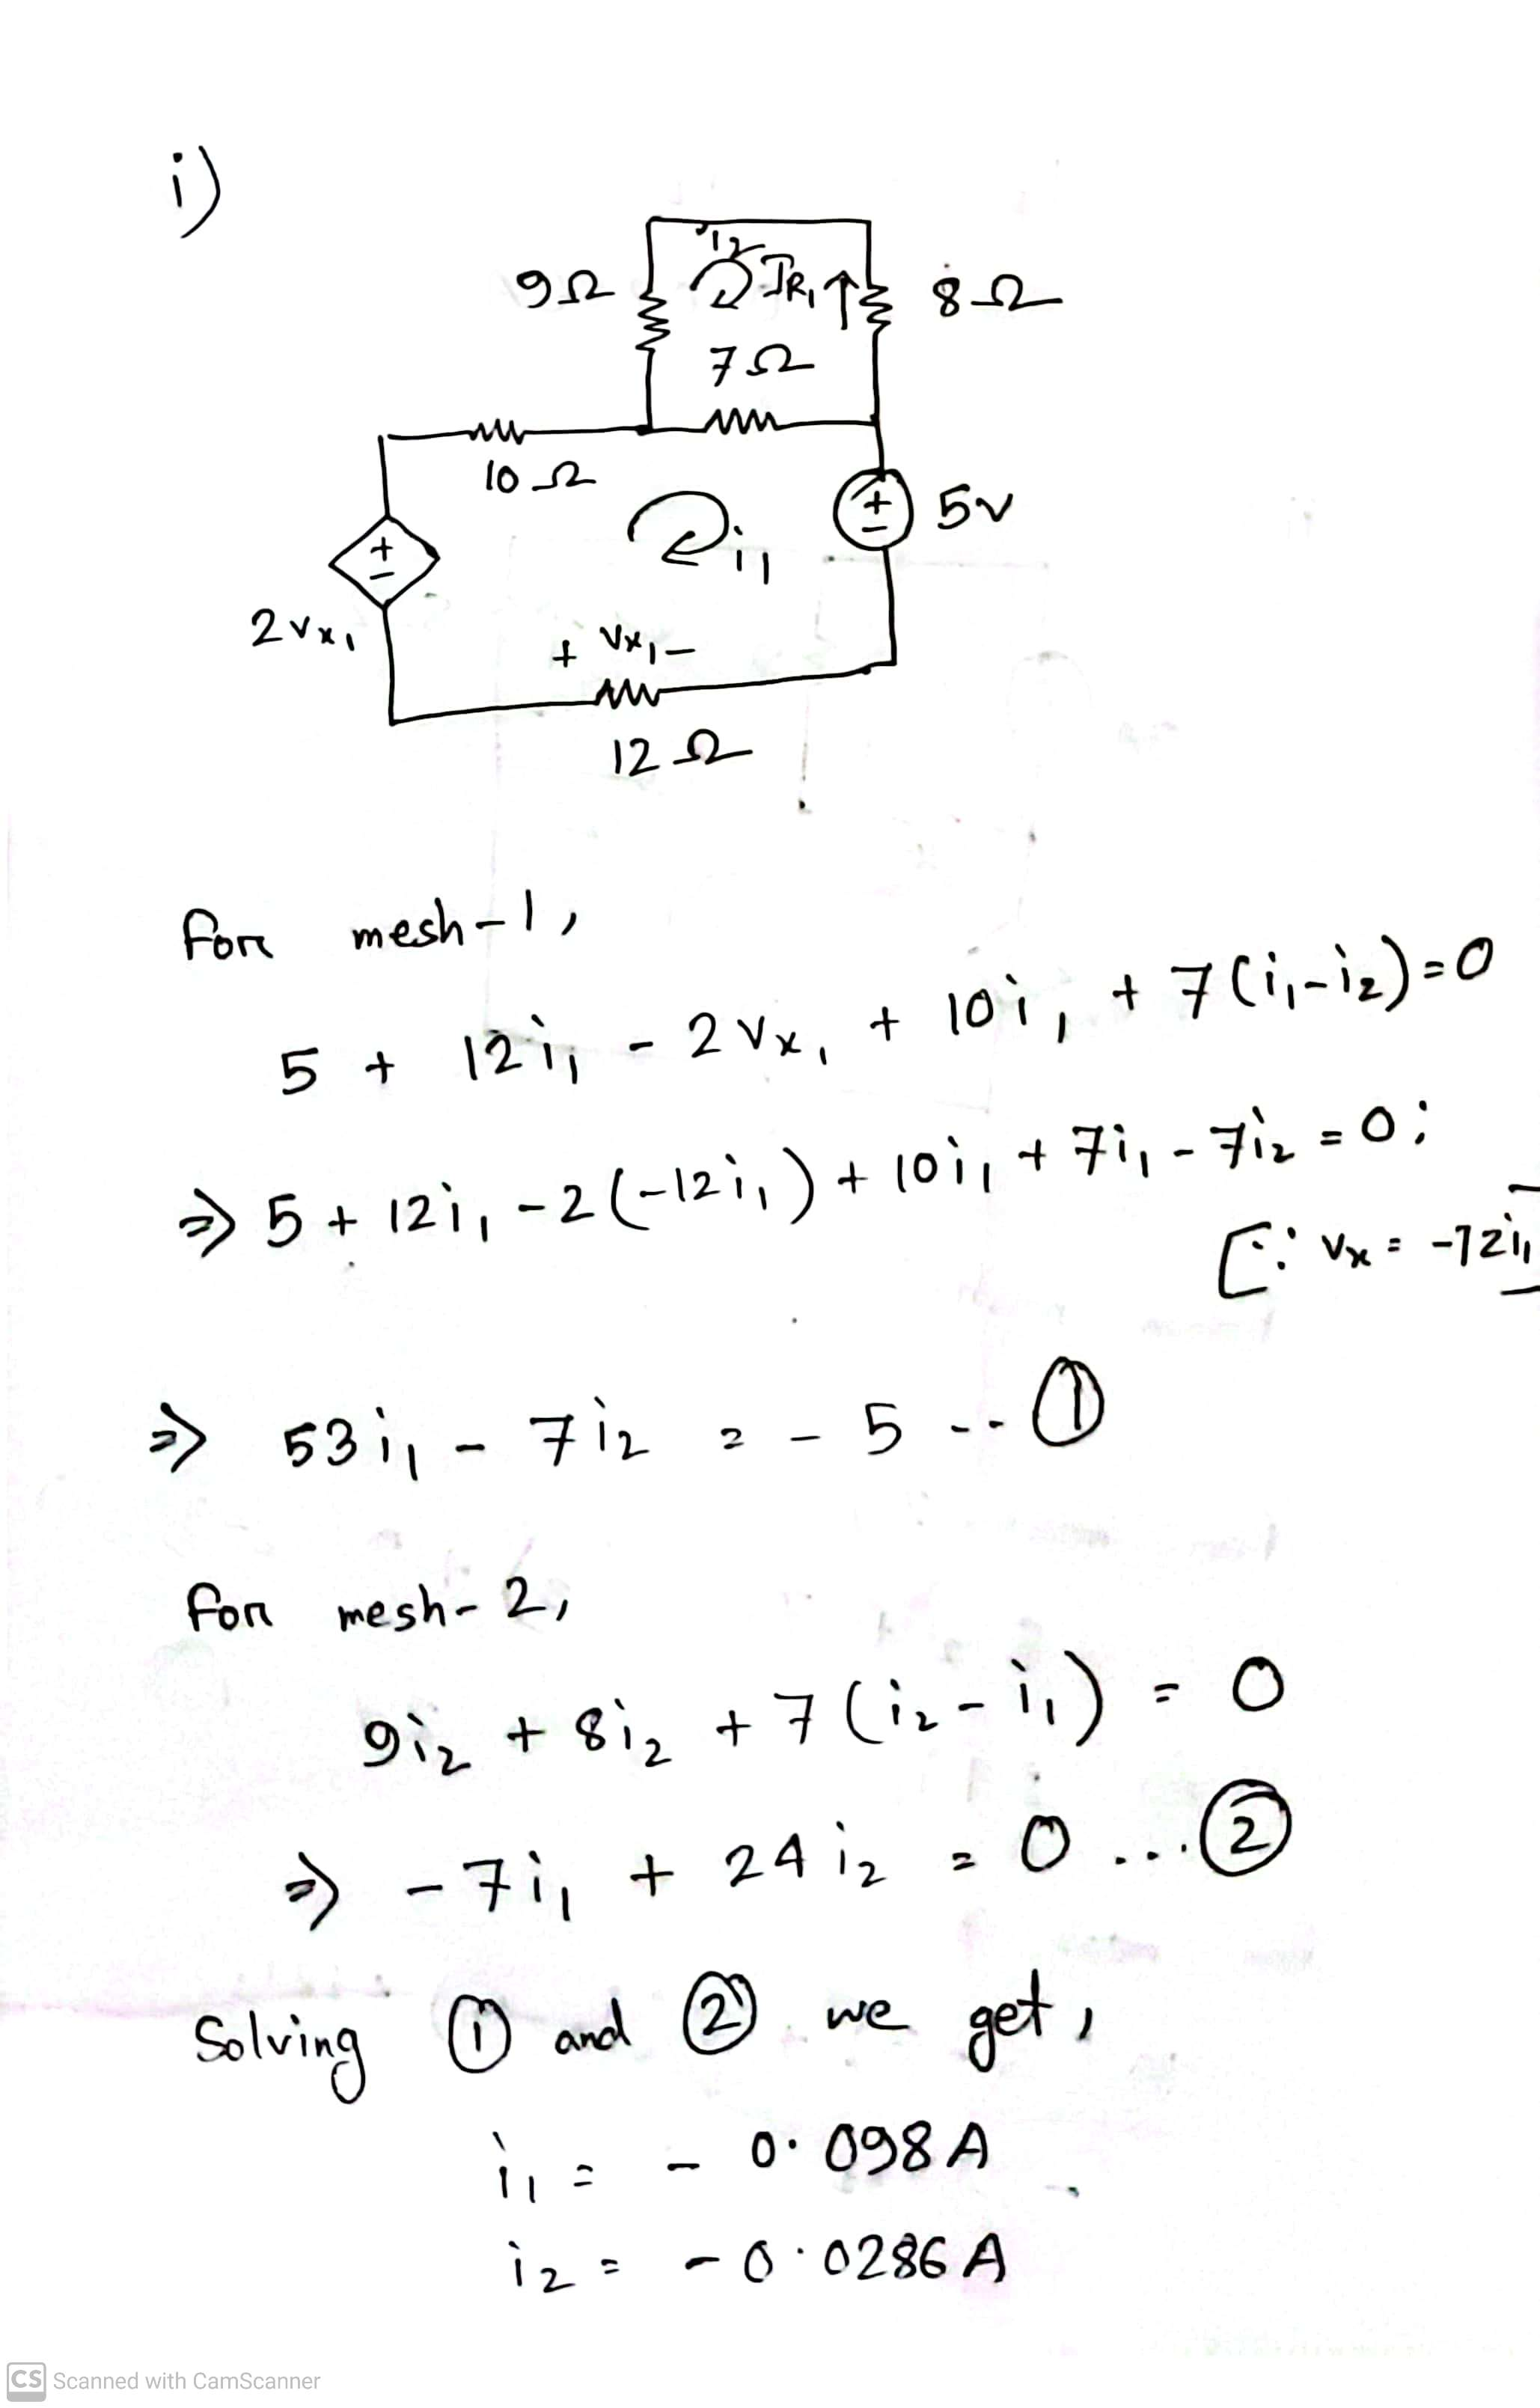 i)
i₂
9Ω
I_R₁ ↑
8Ω
7Ω
10Ω
+
-
5v
i₁
+
-
2Vx₁
+ Vx₁ -
12Ω
for mesh-1,
5 + 12i₁ - 2Vx₁ + 10i₁ + 7(i₁-i₂)=0
⇒ 5 + 12i₁ - 2(-12i₁) + 10i₁ + 7i₁ - 7i₂ = 0;
[∵ Vx = -12i₁]
⇒ 53i₁ - 7i₂ = - 5 -- ①
for mesh-2,
9i₂ + 8i₂ + 7(i₂-i₁) = 0
⇒ -7i₁ + 24i₂ = 0 ...②
Solving ① and ② we get,
i₁ = - 0.098A
i₂ = -0.0286A
CS Scanned with CamScanner